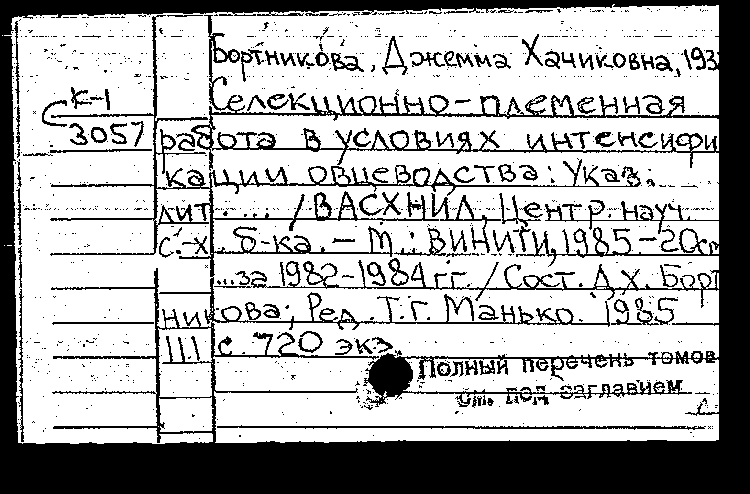 Бортникова, Джемма Хачиковна, 193
К-1
Селекционно-племенная
3057
работа в условиях интенсифи
кации овцеводства: Указ.
лит. ... / ВАСХНИЛ, Центр. науч.
с.-х. б-ка. - М.: ВИНИТИ, 1985 - 20см
...за 1982-1984 гг. / Сост. Д.Х. Борт
никова; Ред. Т.Г. Манько. 1985
111 с. 720 экз.
Полный перечень томов
см. под заглавием